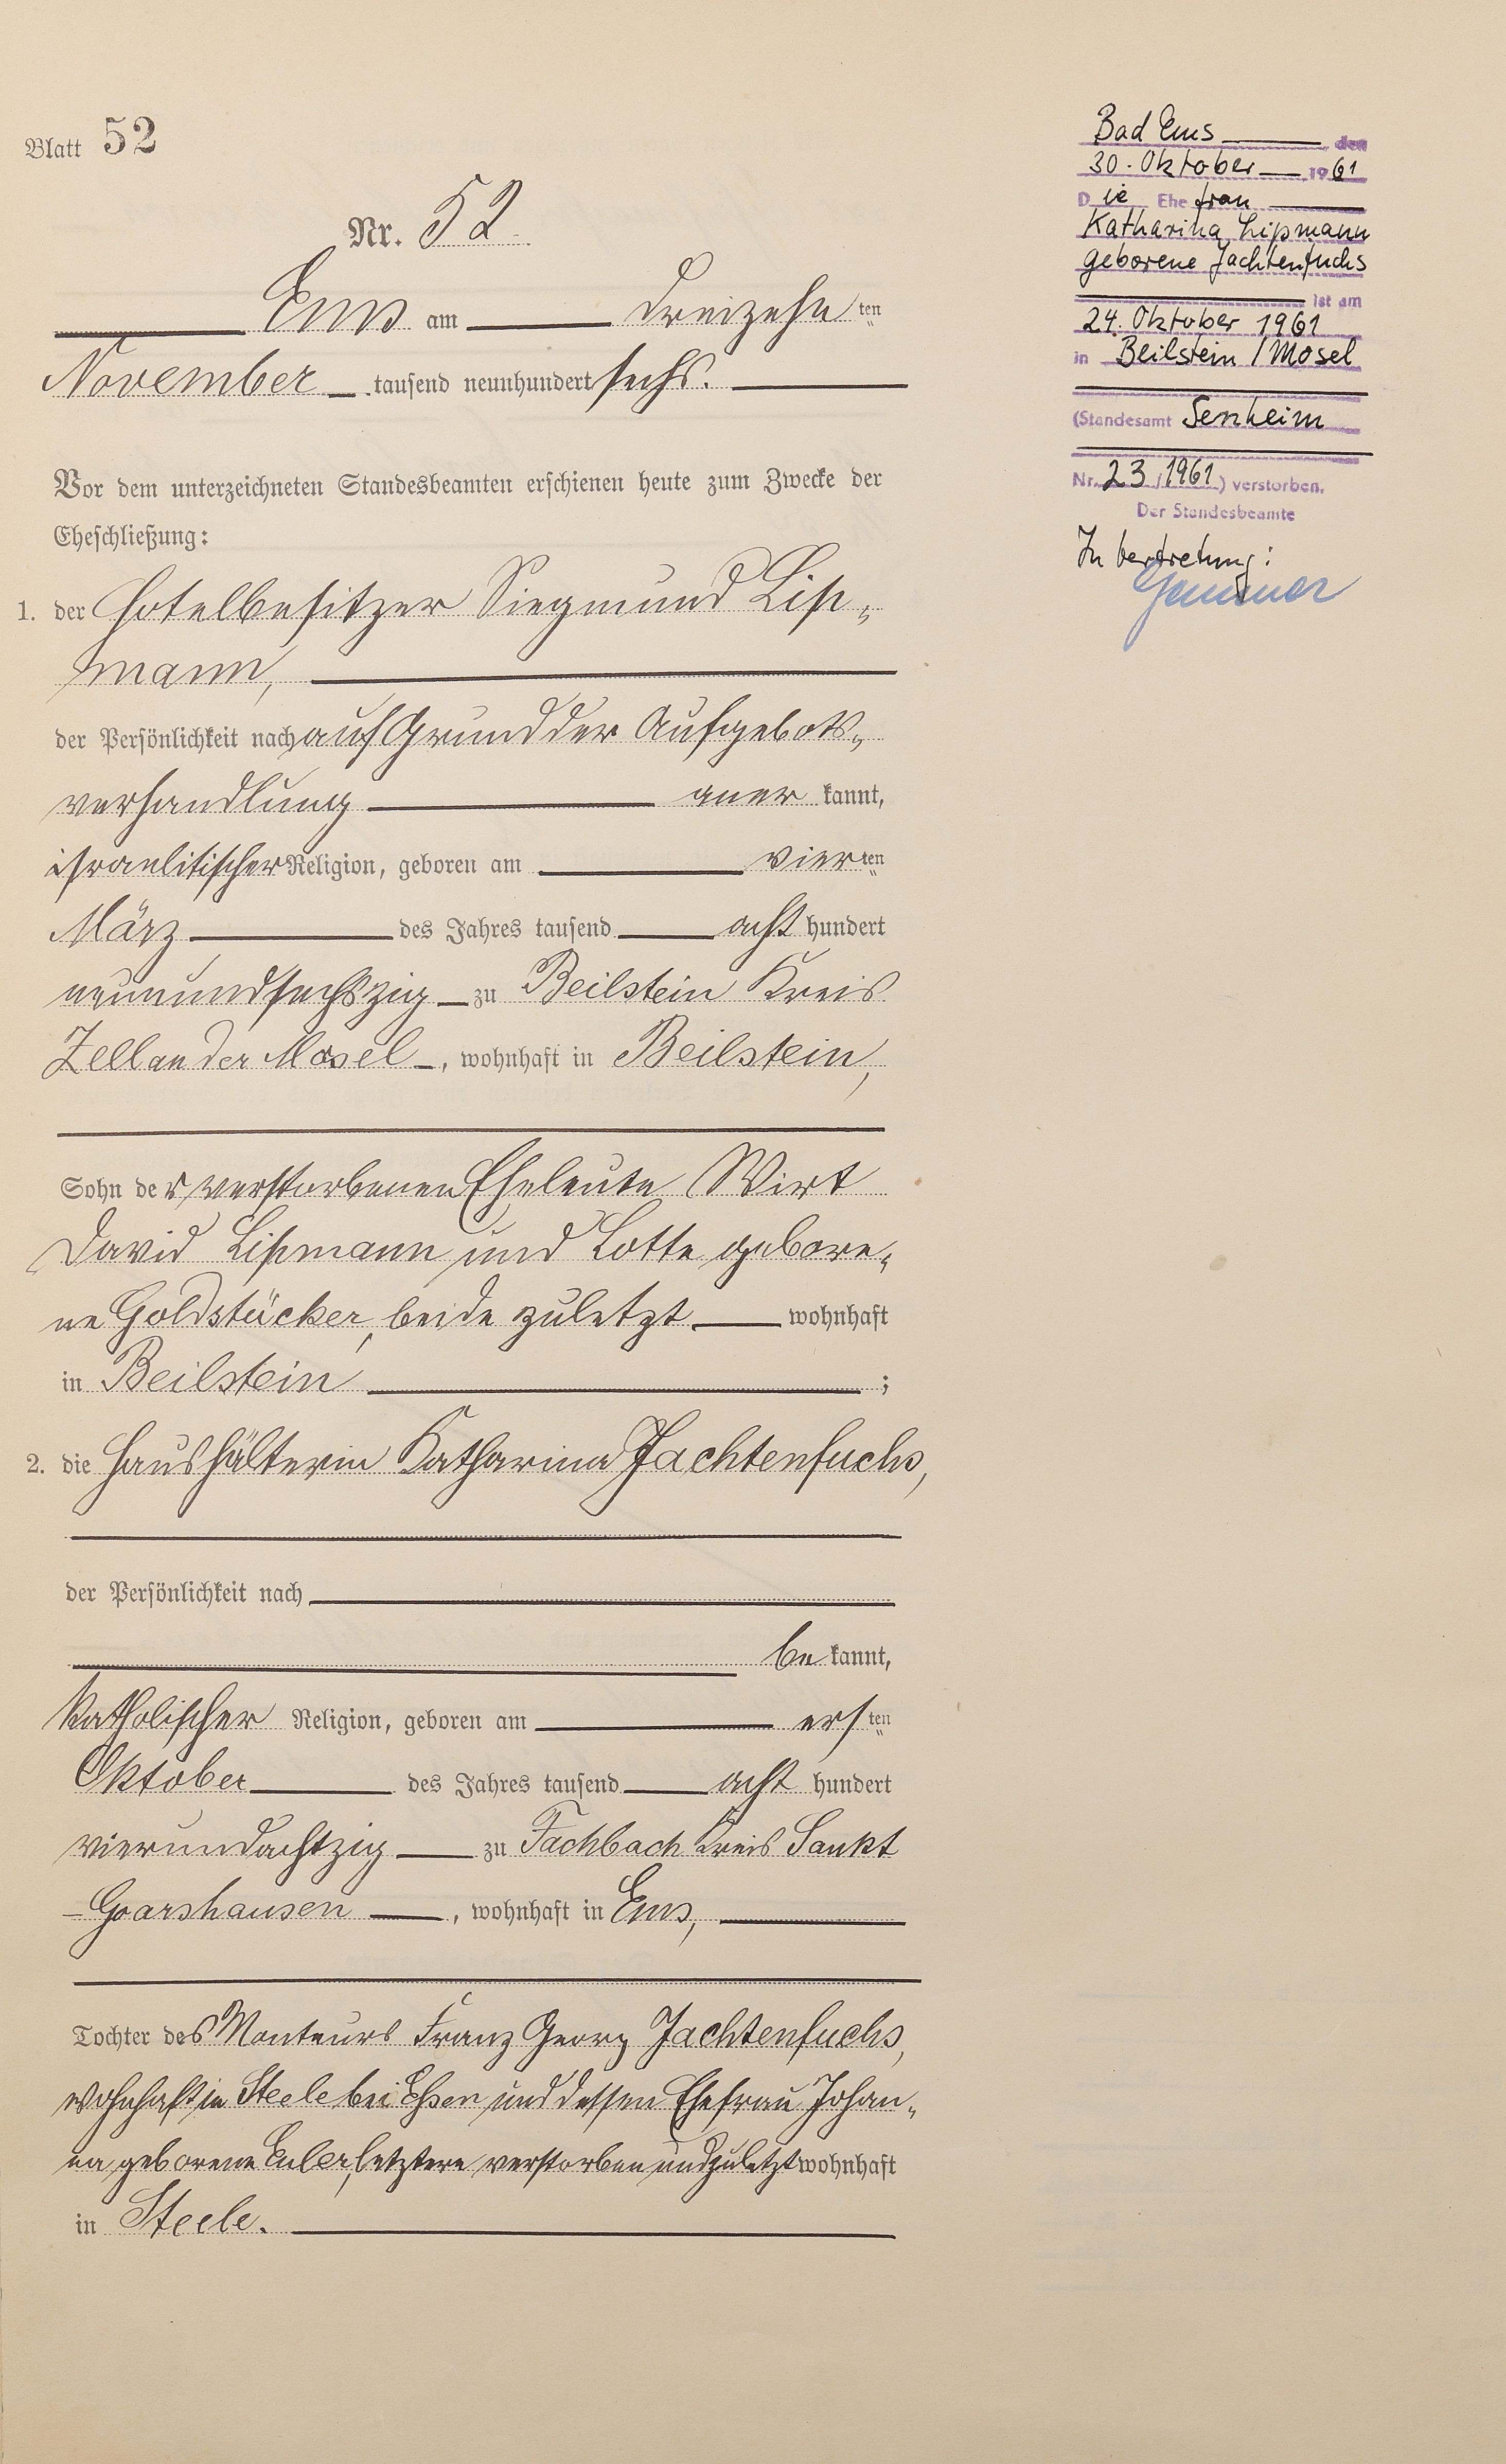 Blatt 52
Nr. 52
Ems am dreizehnten
November tausend neunhundert sechs.
Vor dem unterzeichneten Standesbeamten erschienen heute zum Zwecke der
Eheschließung:
1. der Hotelbesitzer Siegmund Lip-
mann,
der Persönlichkeit nach auf Grund der Aufgebots-
verhandlung anerkannt,
israelitischer Religion, geboren am vierten
März des Jahres tausend achthundert
neunundsechszig zu Beilstein Kreis
Zell an der Mosel, wohnhaft in Beilstein,
Sohn der verstorbenen Eheleute Wirt
David Lipmann und Lotte gebore-
ne Goldstücker, beide zuletzt wohnhaft
in Beilstein ;
2. die Haushälterin Katharina Jachtenfuchs,
der Persönlichkeit nach
bekannt,
katholischer Religion, geboren am ersten
Oktober des Jahres tausend acht hundert
vierundachtzig zu Fachbach Kreis Sankt
-Goarshausen, wohnhaft in Ems,
Tochter des Monteurs Franz Georg Jachtenfuchs,
wohnhaft in Steele bei Essen und dessen Ehefrau Johan-
na geborene Euler, letztere verstorben und zuletzt wohnhaft
in Steele.
Bad Ems, den
30. Oktober 1961
Die Ehefrau
Katharina Lipmann
geborene Jachtenfuchs
ist am
24. Oktober 1961
in Beilstein / Mosel
(Standesamt Senheim
Nr. 23 / 1961) verstorben.
Der Standesbeamte
In Vertretung: